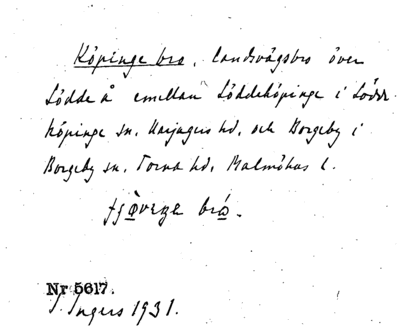 Köpinge bro, landsvägsbro över
Lödde å emellan Löddeköpinge i Lödde
köpinge sn. Harjagers hd. och Borgeby i
Borgeby sn. Torna hd. Malmöhus l.
bro.
Nr 5617.
I. Ingers 1931.